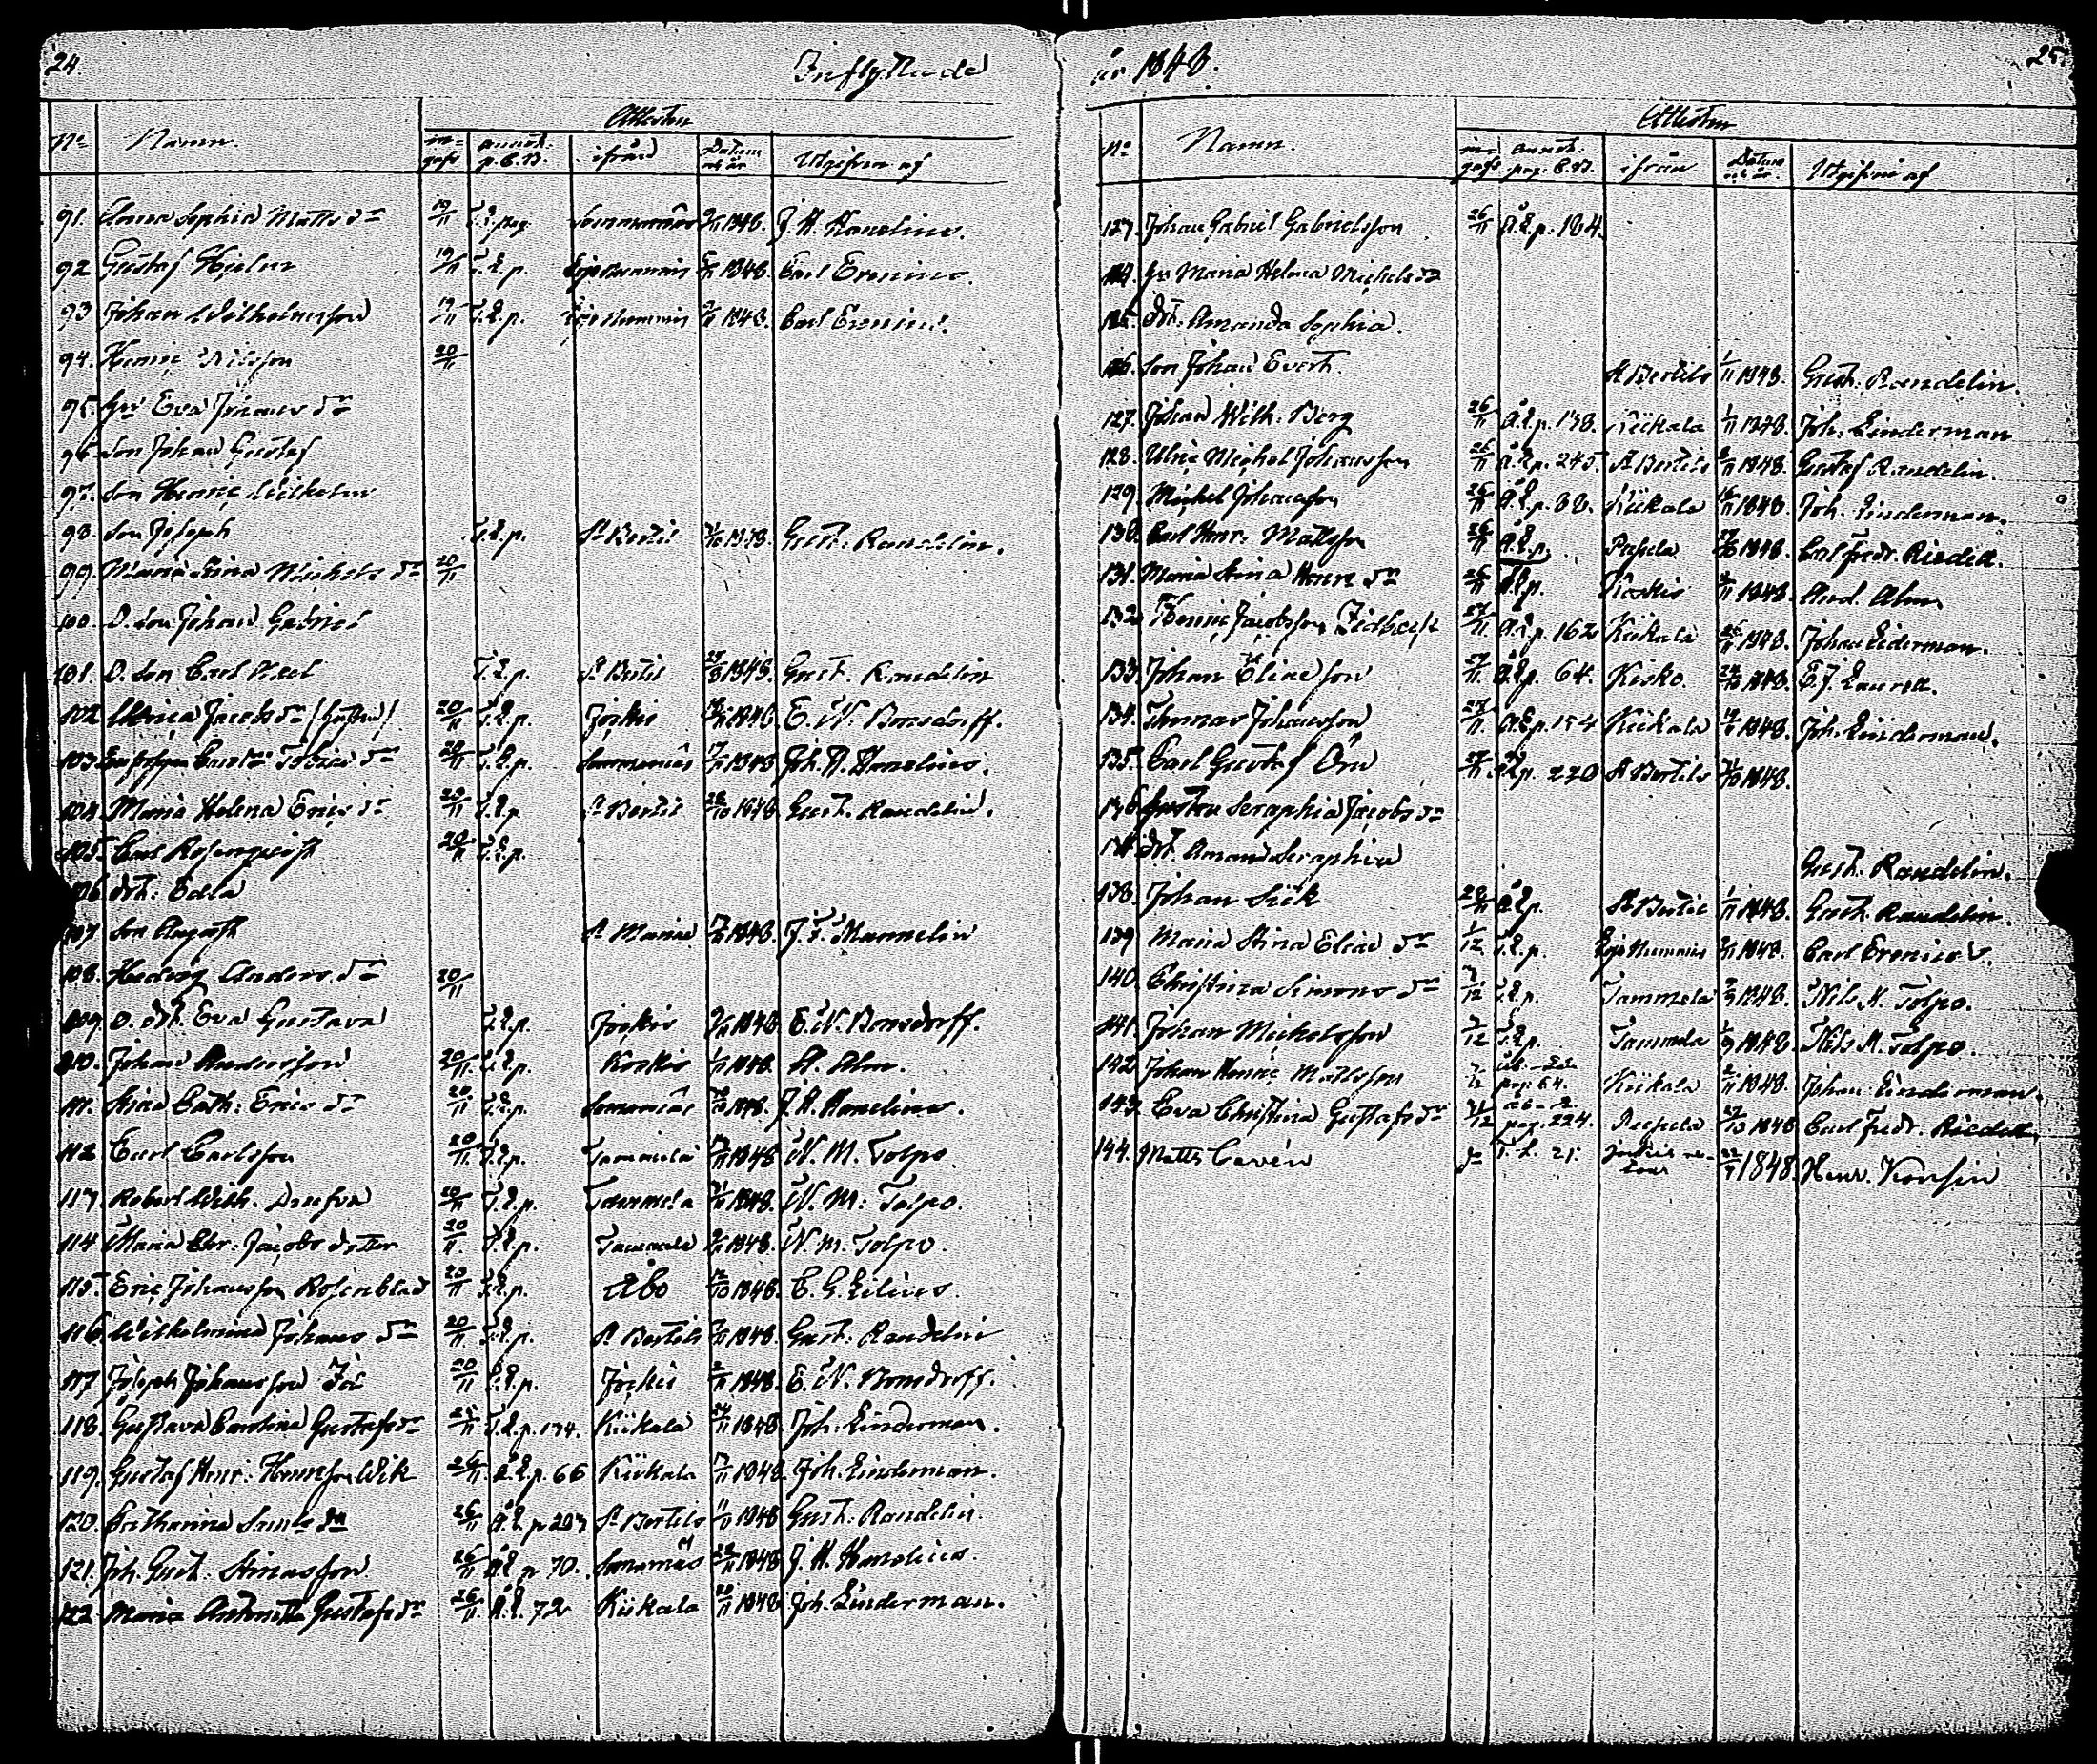 24. Inflyttade
No Namn. Attester
in- gafs annot. p. C.B. ifrån Datum och år Utgifven af
91. Anna Sophia Matts dr 19/11 T.L. pag. Sommarnäs 1848. J. H. Hanelius.
92 Gustaf Hjelm 19/11 T.L.p. Lojo Nummis 1848. Carl Erenius.
93 Johan Wilhelmsson 19/11 T.L.p. Nummis 1848. Carl Erenius.
94. Henric Nilsson 20/11
95. Hu Eva Johans dr
96 Son Johan Gustaf
97. Son Henric Wilhelm
98. Son Joseph T.L.p. St Bertils 1848. Gust. Randelin.
99. Maria Stina Michels dr 20/11
100. O. Son Johan Gabriel
101. O. Son Carl Axel T.L.p. St Bertils 1848. Gust. Randelin
102 Ulrica Jacobs dr 20/11 T.L.p. Jockis 1848 E. W. Bonsdorff.
103. Tobias dr 20/11 T.L.p. Sommarnäs 1848 Joh. H. Hanelius.
104. Maria Helena Erics dr 20/11 T.L.p St Bertils 28/10 1848 Gust. Randelin.
105. Carl Rosenqvist 20/11 T.L.p.
106 drt. Edla
107 Son August St Mariae 1848. J. F. Mammelin
108. Hedvig Anders dr 20/11
109. O. drt. Eva Gustava T.L.p. Jockis 1848 E. W. Bonsdorff.
110. Johan Andersson 20/11 T.L.p. Koskis 1/11 1848. A. Alm.
111. Stina Cath. Erics dr 20/11 T.L.p. Somernäs 1848. J. H. Hanelius.
112 Carl Carlsson 20/11 T.L.p. Tammela 1848 N. M. Tolpo
113. Robert Wilh. Drufva 20/11 T.L.p. Tammela 1848. N. M. Tolpo.
114 Maria Chr. Jacobs dotter 20/11 T.L.p. Tammela 1848. N. M. Tolpo.
115. Eric Johansson Rosenblad 20/11 T.L.p. Åbo 1848. C. G. Lilius.
116. Wilhelmina Johans dr 20/11 T.L.p. St Bertils 1848. Gust. Randelin
117 Joseph Johansson 20/11 T.L.p. Jockis 2/11 1848. E. W. Bonsdorff.
118. Gustava Carolina Gustafs dr 25/11 T.L.p. 174. Kiikala 1848. Joh. Linderman.
119. Gustaf Henr. Henrsson Wik 26/11 Å.L.p. 66 Kiikala 1848. Joh. Linderman.
120. Catharina Sam:s dr 26/11 Å.L. p 207 St Bertils 1848 Gust. Randelin.
121. Joh. Gust. Stinasson 26/11 Å.L p 70. Somernäs 1848 J. H. Hanelius.
122 Maria Antonetta Gustafs dr 26/11 Å.L. 72 Kiikala 20/11 1848 Joh. Linderman.
år 1848. 25.
No Namn. Attester
in- gafs annot. pag. C.B. ifrån Datum och år. Utgifvne af
123. Johan Gabriel Gabrielsson 26/11 Å.L.p. 184.
124. Hu Maria Helena Michels dr
125. drt. Amanda Sophia.
126. Son Johan Evert. St Bertils 1/11 1848. Gust. Randelin.
127. Johan Wilh. Berg 26/11 Å.L.p. 138. Kiikala 1/11 1848. Joh. Linderman
128. Ulric Michel Johansson 26/11 Å.L.p. 245. St Bertils 1848. Gustaf Randelin.
129. Michel Johansson 26/11 Å.L.p. 88. Kiikala 1848. Joh. Linderman.
130. Carl Henr. Mattsson 26/11 Å.L.p. 1848. Carl Fredr. Riedell.
131. Maria Stina Henr. dr 26/11 Å.L.p. Koskis 1848. And. Alm
132 Henric Jacobsson 27/11 Å.L.p 162 Kiikala 1848. Johan Linderman.
133. Johan Eliasson 27/11 Å.L.p. 64. Kisko. 1848. E. J. Laurell.
134. Thomas Johansson 27/11. Å.L.p. 154 Kiikala 1848. Joh. Linderman.
135. Carl Gustaf Örn 27/11 Å.L.p. 220 St Bertils 1848.
136 Seraphia Jacobs dr
137 drt. Amanda Seraphia Gust. Randelin.
138. Johan Sick 28/11 Å.L.p. St Bertils 1/11 1848. Gust. Randelin.
139 Maria Stina Elias dr 1/12 T.L.p. Lojo Nummis 1848. Carl Erenius.
140. Christina Simons dr /12 T.L.p. Tammela 1848. Nils M. Tolpo.
141. Johan Michelsson /12 T.L.p. Tammela 1848. Nils M. Tolpo.
142 Johan Henric Mattsson /12 pag. 64. Kiikala 1848. Johan Linderman.
143. Eva Christina Gustafs dr /12 pag. 224. 1848 Carl Fredr. Riedell.
144. Matts Cavén T. L. 21. 1848. Henr. Konsin